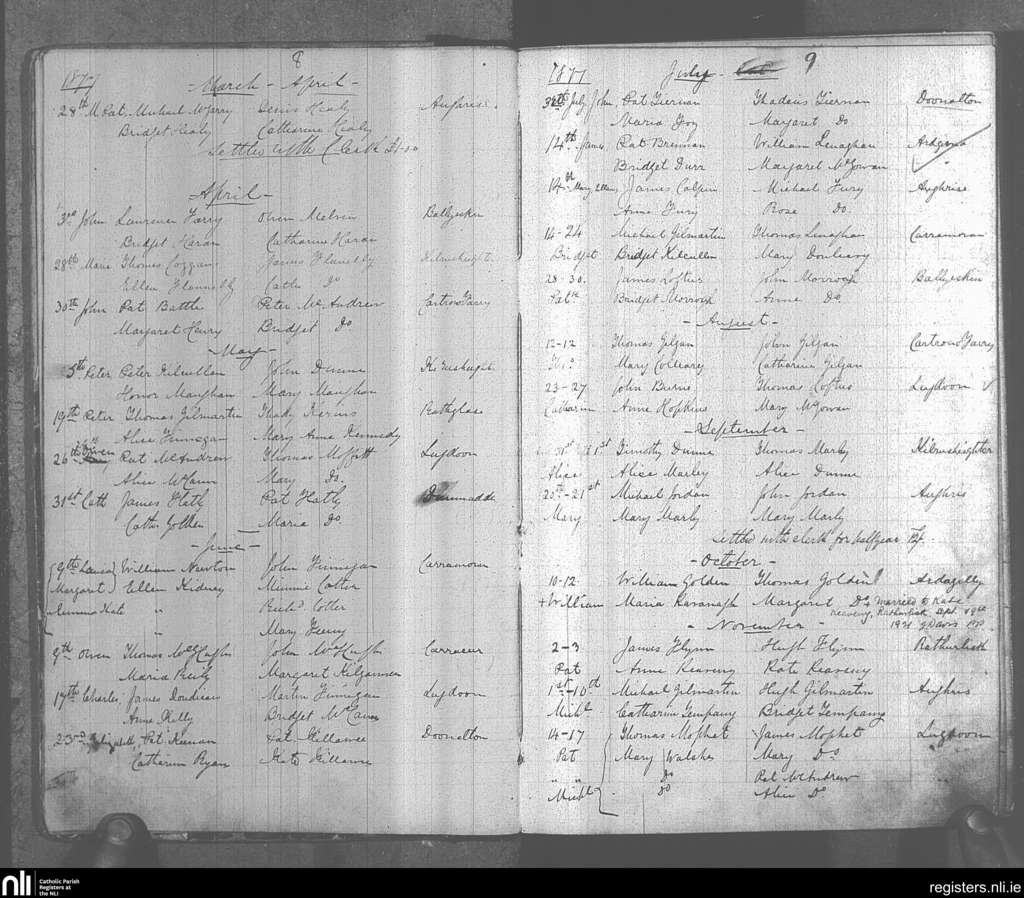 8
1877
- March - April -
28th M. Pat. Michael McGarry Denis Healy Aughris
Bridget Healy Catharine Healy
Settled with Clerk £1-10
- April -
3rd John Laurence Farry Owen Melvin Ballyeskin
Bridget Haran Catharine Haran
28th Maria Thomas Coggan James Flannelly
Ellen Flannelly Cathe Do
30th John Pat Battle Peter McAndrew Cartron Farry
Margaret Henry Bridget Do
- May -
5th Peter Peter Kilcullen John Dunne
Honor Maughan Mary Maughan
19th Peter Thomas Gilmartin Thady Kerins Rathglass
Alice Finnegan Mary Anne Kennedy
26th Owen Pat McAndrew Thomas Moffitt Lugdoon
Alice McCann Mary Do.
31st Cath James Hatly Pat Hatly Dunmadde
Cathe Golden Maria Do
- June -
9th Laura William Newton John Finnegan Carramoran
Margaret Ellen Kidney Minnie Cotter
Kate " Richd. Cotter
" Mary Feeny
9th Owen Thomas McHugh John McHugh
Maria Reily Margaret
17th Charles James Martin Finnegan Lugdoon
Anne Kelly Bridget McCann
23rd Elizabeth Pat Keenan Pat Killawee Doonalton
Catharine Ryan Kate Killawee
1877 July 9
July John Pat Tiernan Thadeus Tiernan Doonalton
Maria Foy Margaret Do
14th James Pat Brennan William Lenaghan
Bridget Durr Margaret McGowan
14th Mary Ellen James Calpin Michael Fury Aughrise
Anne Fury Rose Do.
14-24 Michael Gilmartin Thomas Lenaghan Carramoran
Bridget Bridget Kilcullen Mary Dunleavy
28-30. James Loftus John Morrow Ballyeskin
Bridget Morrow Anne Do
- August -
12-12 Thomas Gilgan John Gilgan Cartron Farry
Mary Colleary Catharine Gilgan
23-27 John Burns Thomas Loftus Lugdoon
Catharin Anne Hopkins Mary McGowan
- September -
31st Timothy Dunne Thomas Marly Kilrusheighter
Alice Alice Marley Alice Dunne
20th-21st Michael Jordan John Jordan Aughris
Mary Mary Marly Mary Marly
Settled with clerk for half year
- October -
10-12 William Golden Thomas Golden Ardagelly
+William Maria Kavanagh Margaret Do. Married to Kate
Reaveny, Rathurlish, Sept.
- November - 1921
2-3 James Flynn Hugh Flynn Rathurlish
Pat Anne Reaveny Kate Reaveny
1st-10th Michael Gilmartin Hugh Gilmartin Aughris
Michl Catharin Tempany Bridget Tempany
14-17 Thomas Mophet James Mophet Lugdoon
Pat Mary Walshe Mary Do
" " Do Pat McAndrew "
Michl Do Alice Do
nli Catholic Parish
Registers at
the NLI
registers.nli.ie